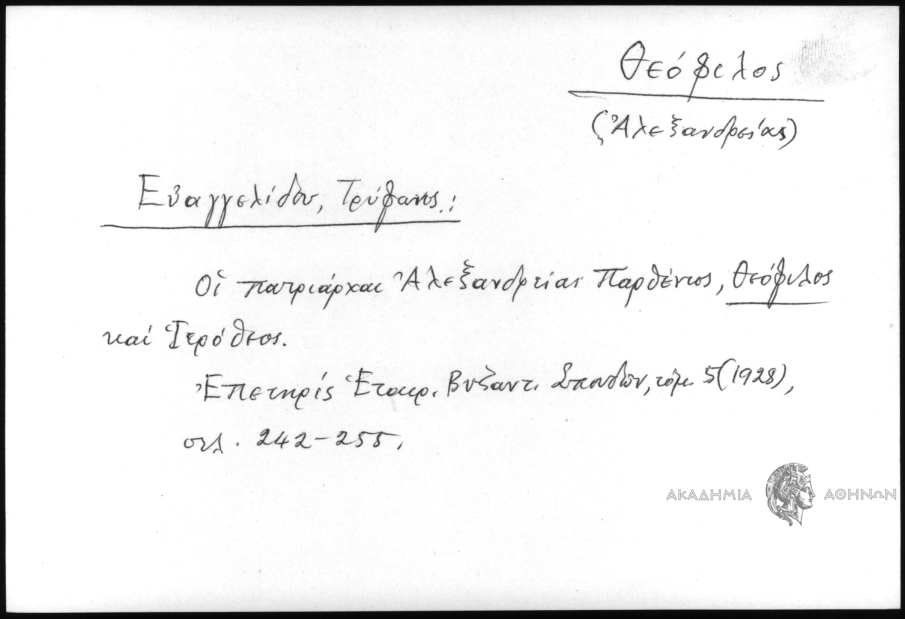 Θεόφιλος
(Ἀλεξανδρείας)
Εὐαγγελίδου, Τρύφωνος.:
Οἱ πατριάρχαι Ἀλεξανδρείας Παρθένιος, Θεόφιλος
καί Ἱερόθεος.
Ἐπετηρίς Ἑταιρ. Βυζαντ. Σπουδῶν, τόμ. 5(1928),
σελ. 242-255.
ΑΚΑΔΗΜΙΑ ΑΘΗΝΩΝ